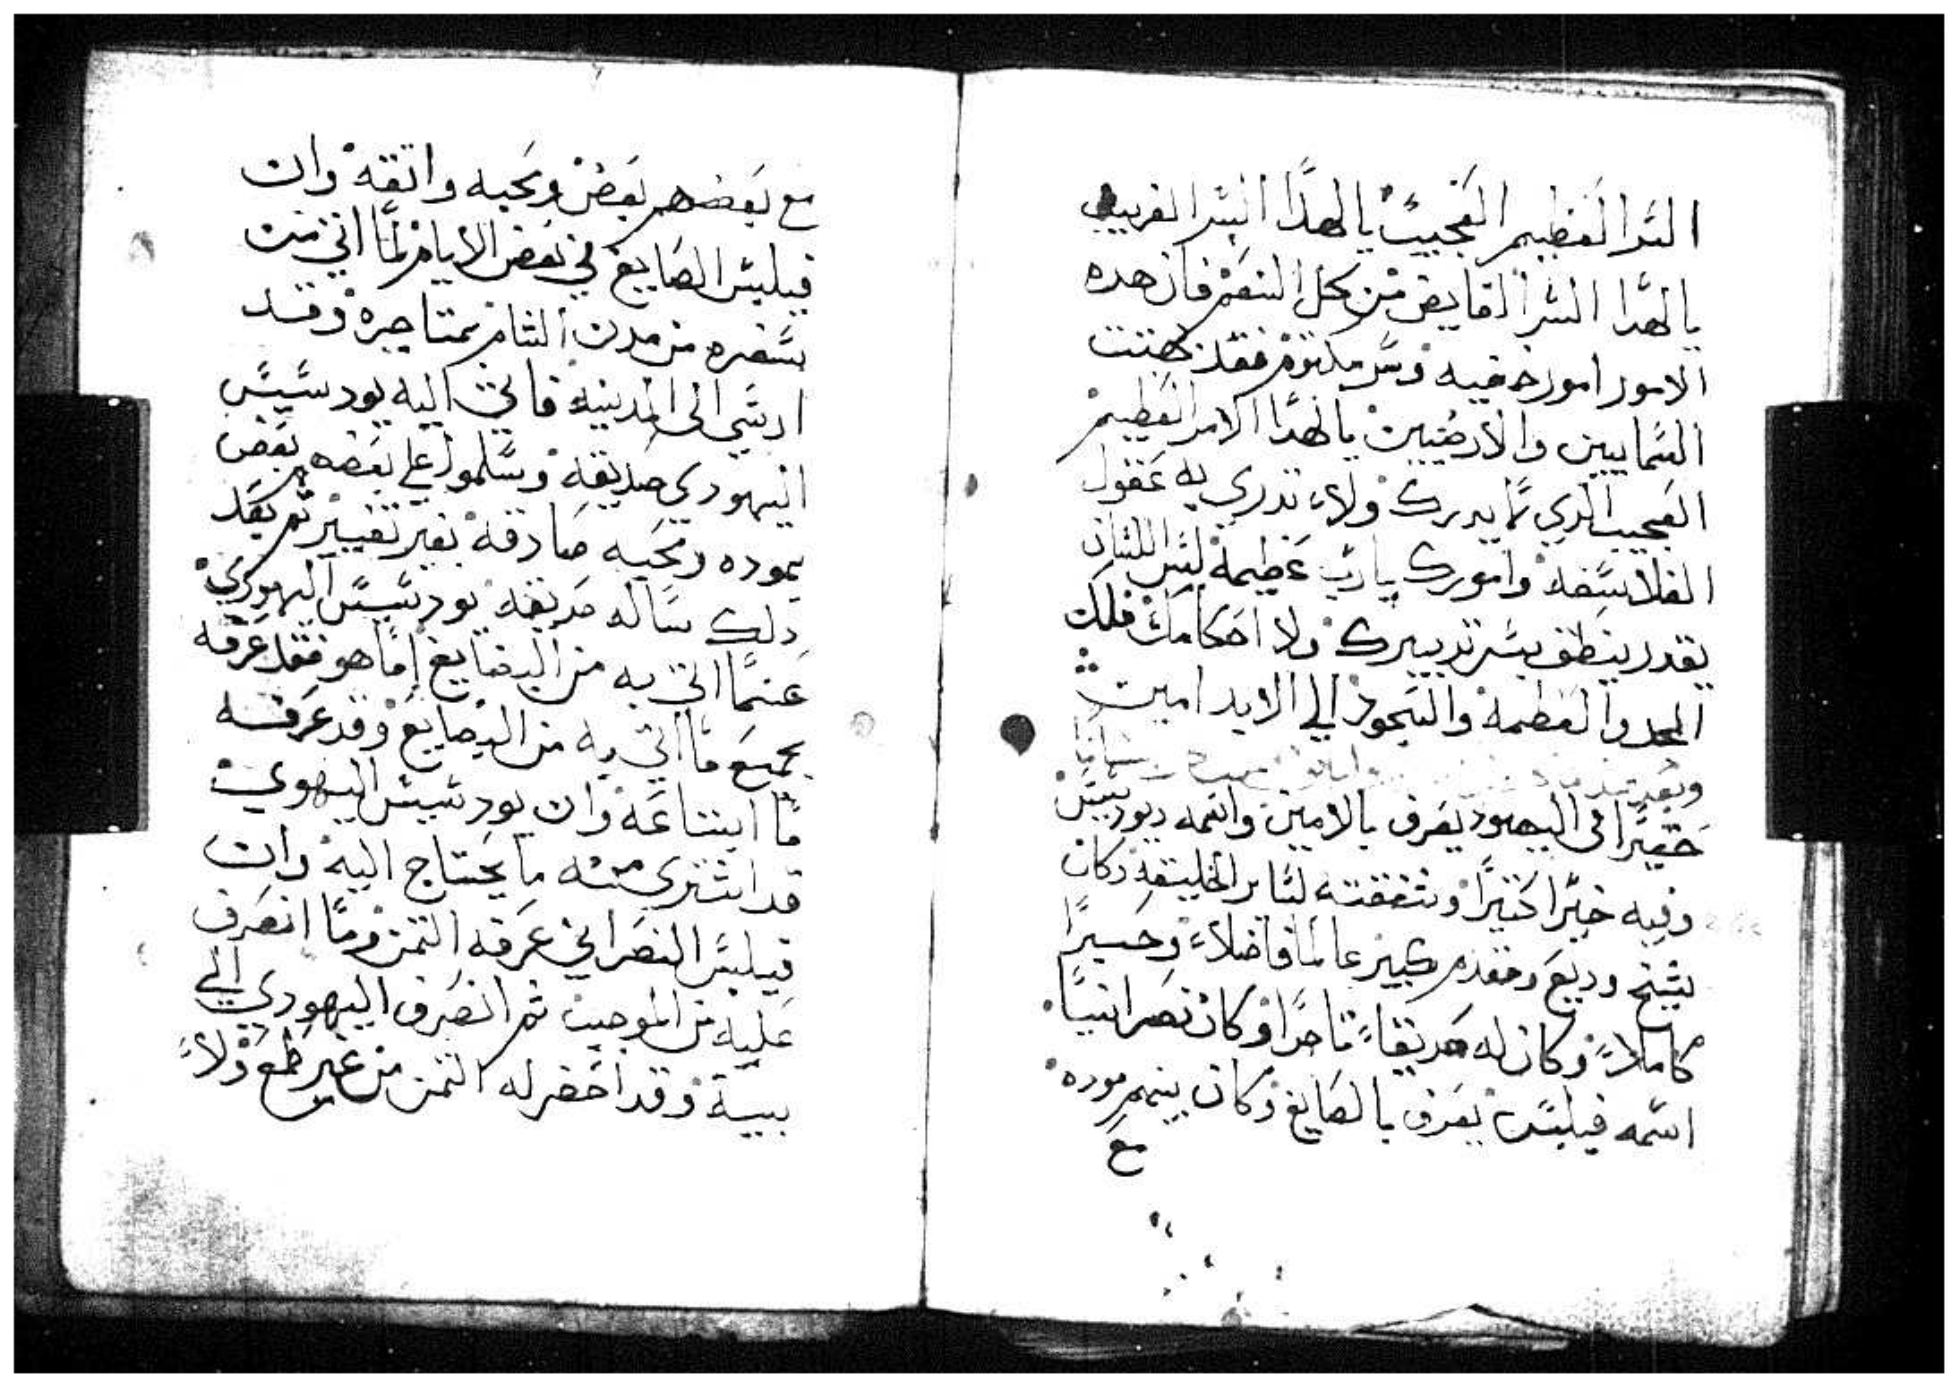 السر العظيم العجيب يا لهدا السر الغريب
يا لهدا السر الفايق من كل النعم فان هده
الامور امور خفيه وسر مكتوم فقد بهتت
السمايين والارضيين يا لهدا الامر العظيم
العجيب الدي لما يدرك ولاء تدري به عقول
الفلاسفه وامورك يارب عظيمة ليس اللسان
يقدر ينطق بسر تدبيرك ولا احكامك فلك
المجد والعظمة والسجود الي الابد امين
وبعد
حقيرا في اليهود يعرف بالامين واسمه ديودسيس
وفيه خيرا كتيرا وشفقته لساير الخليقه وكان
شيخ وديع ومقدم كبير عالما فاضلاء وحسيرا
كاملاء وكان له صديقاء تاجرا وكان نصرانيا
اسمه فيلبس يعرف بالصايغ وكان بينهم موده
مع
مع بعضهم بعض ومحبه واتقه وان
فيلبس الصايغ في بعض الايام لما اتي من
سفره من مدن الشام بمتاجره وقد
ارسي الى المدينة فاتي اليه يودسيس
اليهودي صديقه وسلموا علي بعضهم بعض
بموده ومحبه صادقه بغير تغيير تم بعد
دلك ساله صديقه يودسيس اليهودي
عنما اتي به من البضايع إما هو فقد عرفه
بجميع ما اتي به من البضايع وقد عرفه
ما ابتتاعه وان يودسيس اليهوي
قد اشتري منه ما يحتاج اليه وان
فيلبس النصراني عرفه التمن وما انصرف
عليه من الموجب تم انصرف اليهودي الي
بيته وقد احضر له التمن من غير طمع ولاء